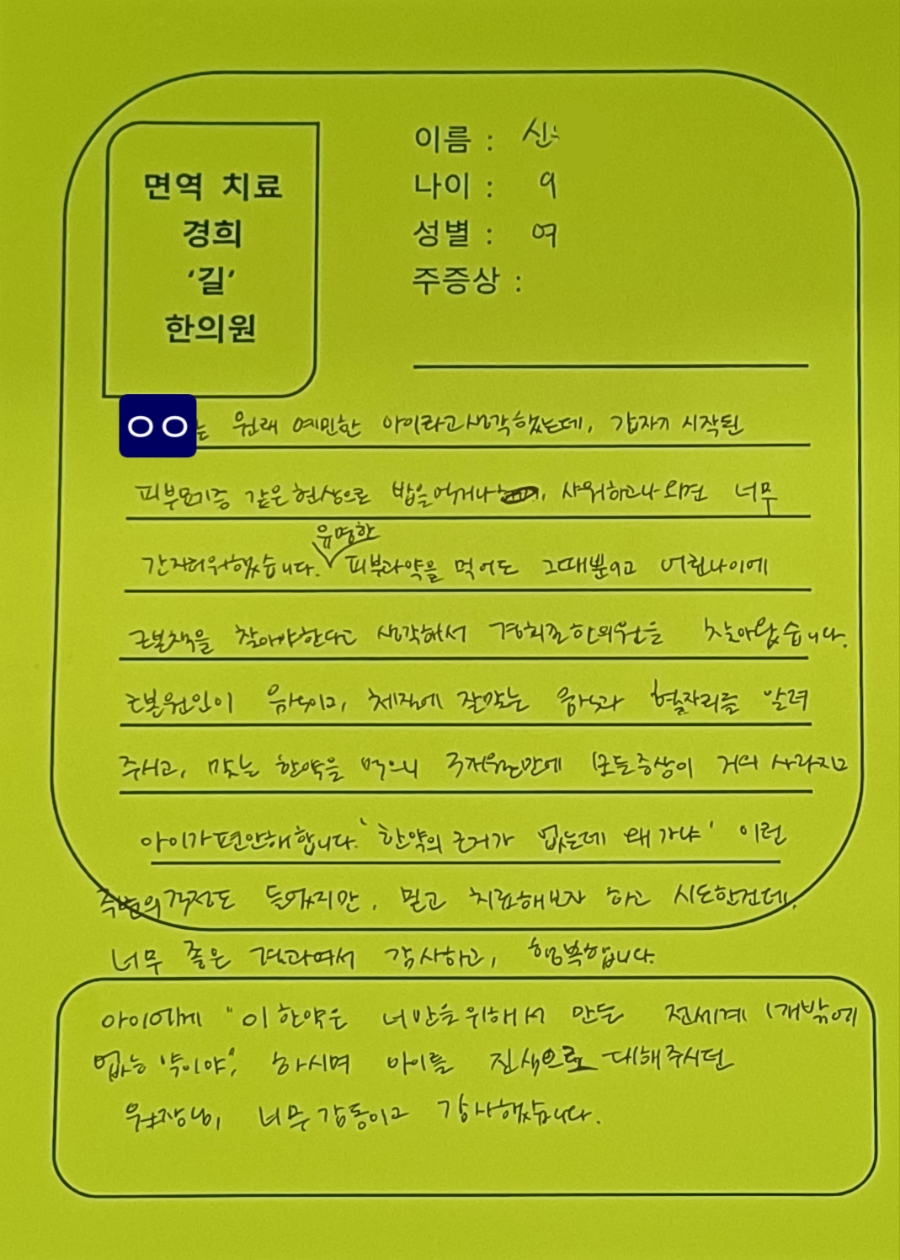 면역 치료
경희
'길'
한의원
이름 : 신
나이 : 9
성별 : 여
주증상 :
OO는 원래 예민한 아이라고 생각했는데, 갑자기 시작된
피부묘기증 같은 현상으로 밥을 먹거나, 샤워하고나오면 너무
유명한
간지러워했습니다. 피부과약을 먹어도 그때뿐이고 어린나이에
근본책을 찾아야한다고 생각해서 경희길한의원을 찾아왔습니다.
근본원인이 음식이고, 체질에 잘맞는 음식과 혈자리를 알려
주시고, 맞는 한약을 먹으니 만에 모든증상이 거의 사라지고
아이가 편안해합니다. '한약의 근거가 없는데 왜 가냐' 이런
주변의 걱정도 들었지만, 믿고 치료해보자 하고 시도한건데,
너무 좋은 결과여서 감사하고, 행복합니다.
아이에게 "이 한약은 너만을위해서 만든 전세계 1개밖에
없는 약이야", 하시며 아이를 진심으로 대해주시던
원장님, 너무 감동이고 감사했습니다.